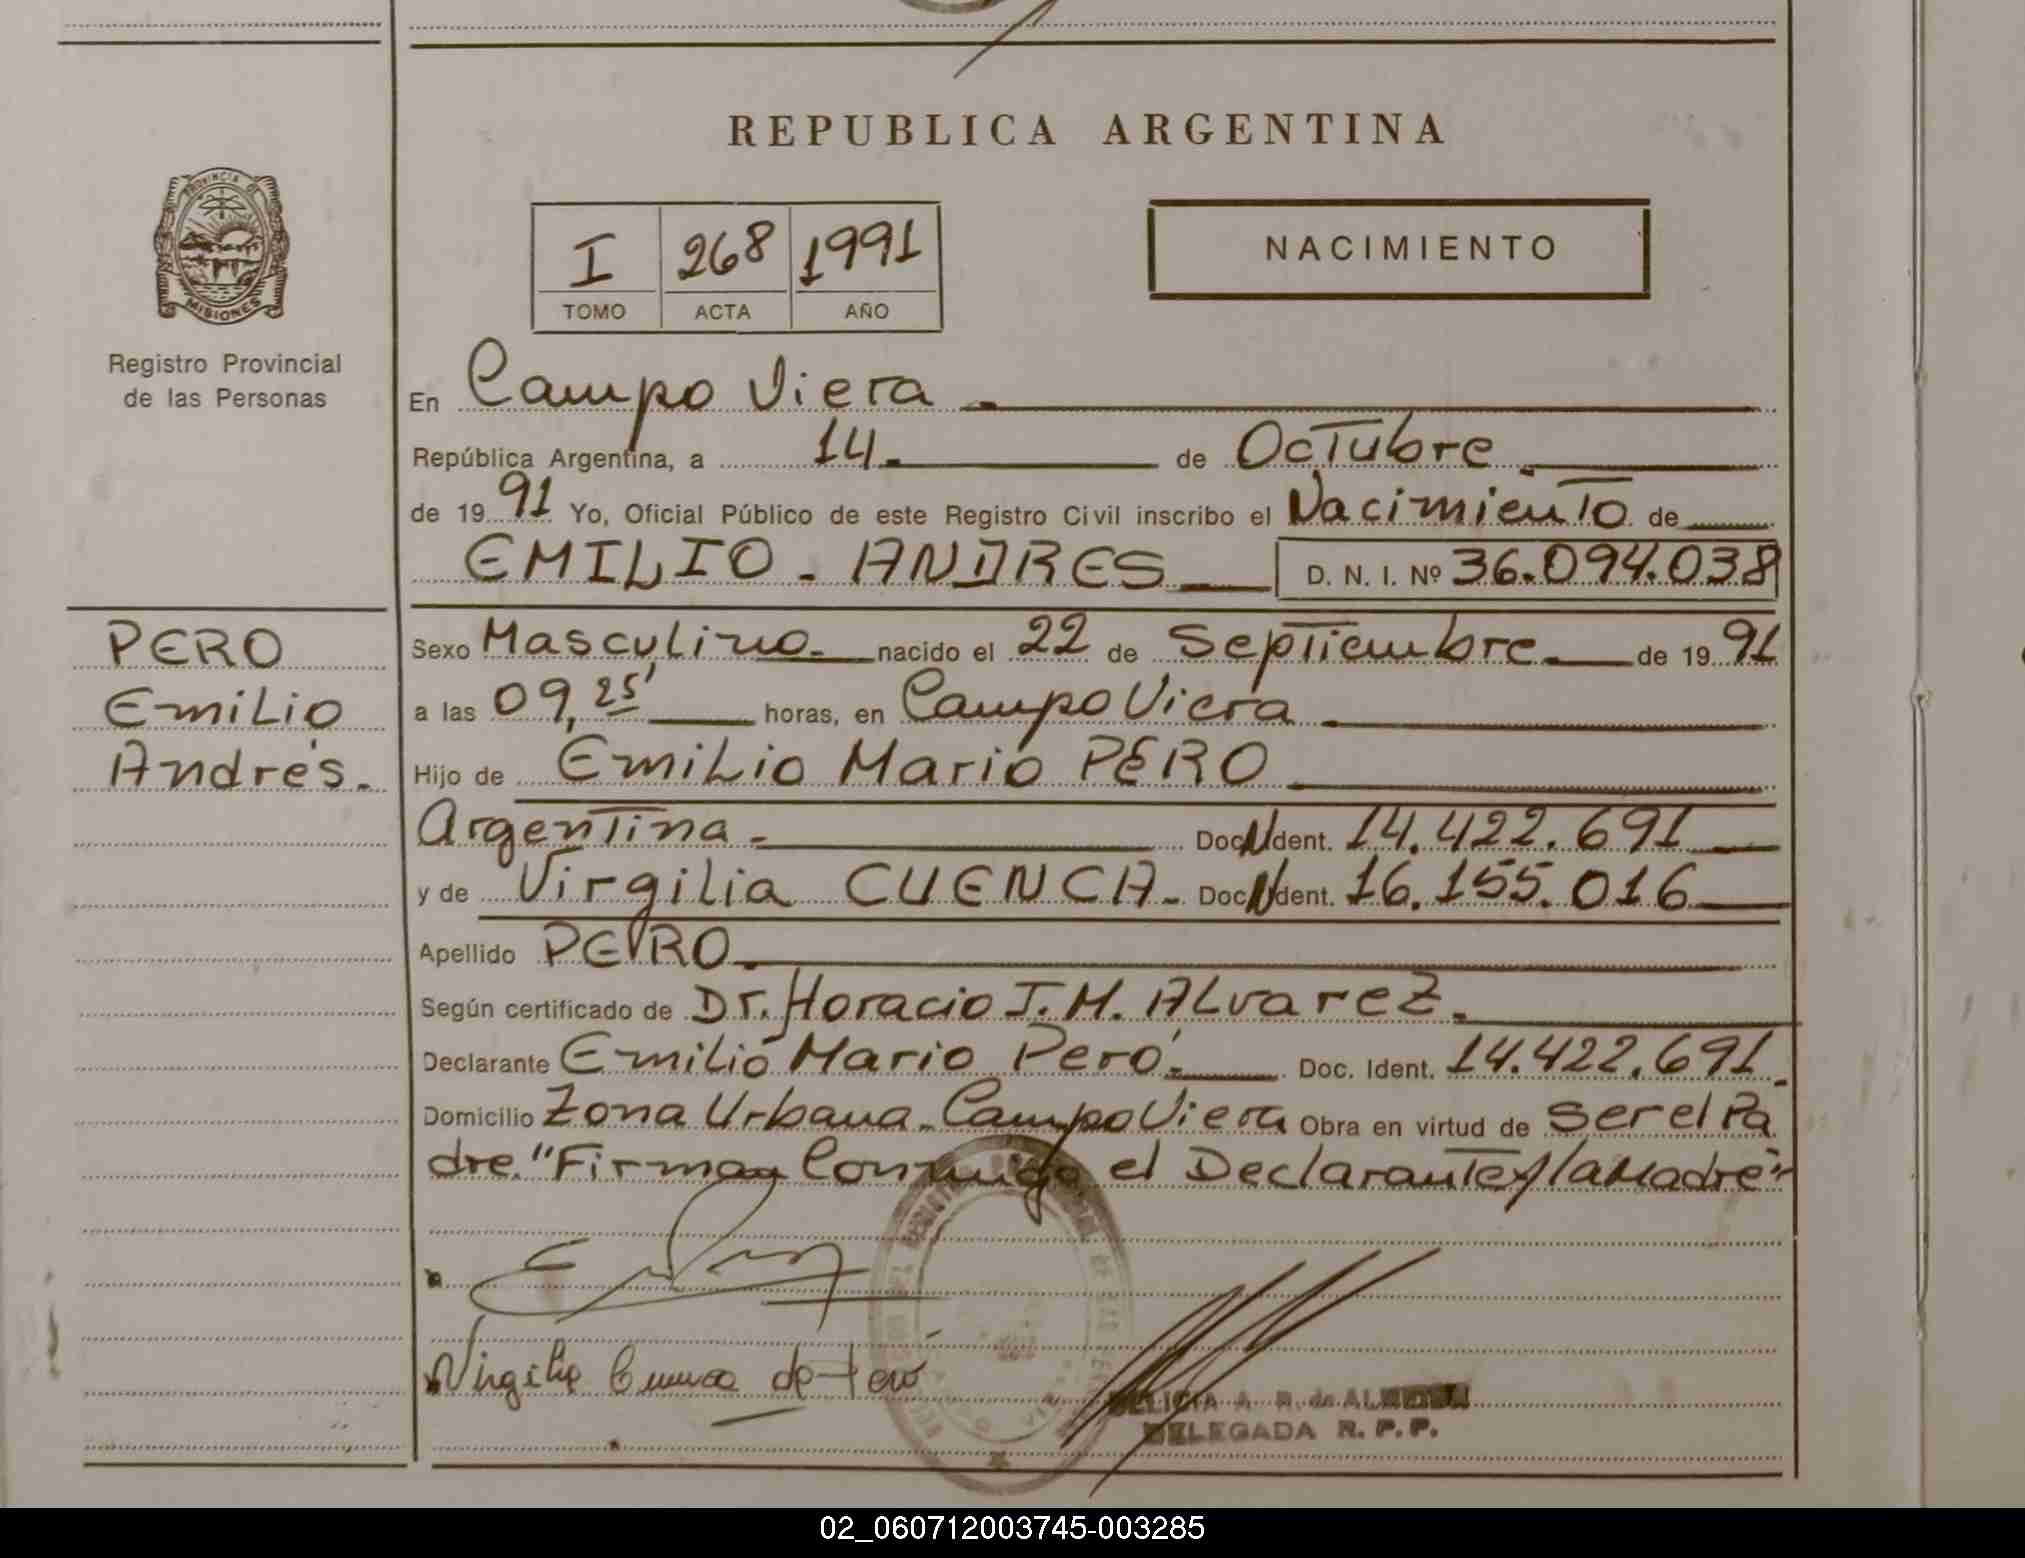 REPUBLICA ARGENTINA
PROVINCIA DE
MISIONES
Registro Provincial
de las Personas
I 268 1991
TOMO ACTA AÑO
NACIMIENTO
En Campo Viera
República Argentina, a 14 de Octubre
de 1991 Yo, Oficial Público de este Registro Civil inscribo el Nacimiento de
EMILIO - ANDRES D. N. I. Nº 36.094.038
PERO
Emilio
Andrés.
Sexo Masculino nacido el 22 de Septiembre de 1991
a las 09,25' horas, en Campo Viera
Hijo de Emilio Mario PERO
Argentina Doc. Ident. 14.422.691
y de Virgilia CUENCA Doc. Ident. 16.155.016
Apellido PERO
Según certificado de Dr. Horacio J. M. Alvarez.
Declarante Emilio Mario Peró Doc. Ident. 14.422.691
Domicilio Zona Urbana - Campo Viera Obra en virtud de ser el Pa
dre. "Firman Conmigo el Declarante y la Madre"
Virgilia Cuenca de Peró
DELICIA A. R. de ALMEIDA
DELEGADA R. P. P.
02_060712003745-003285